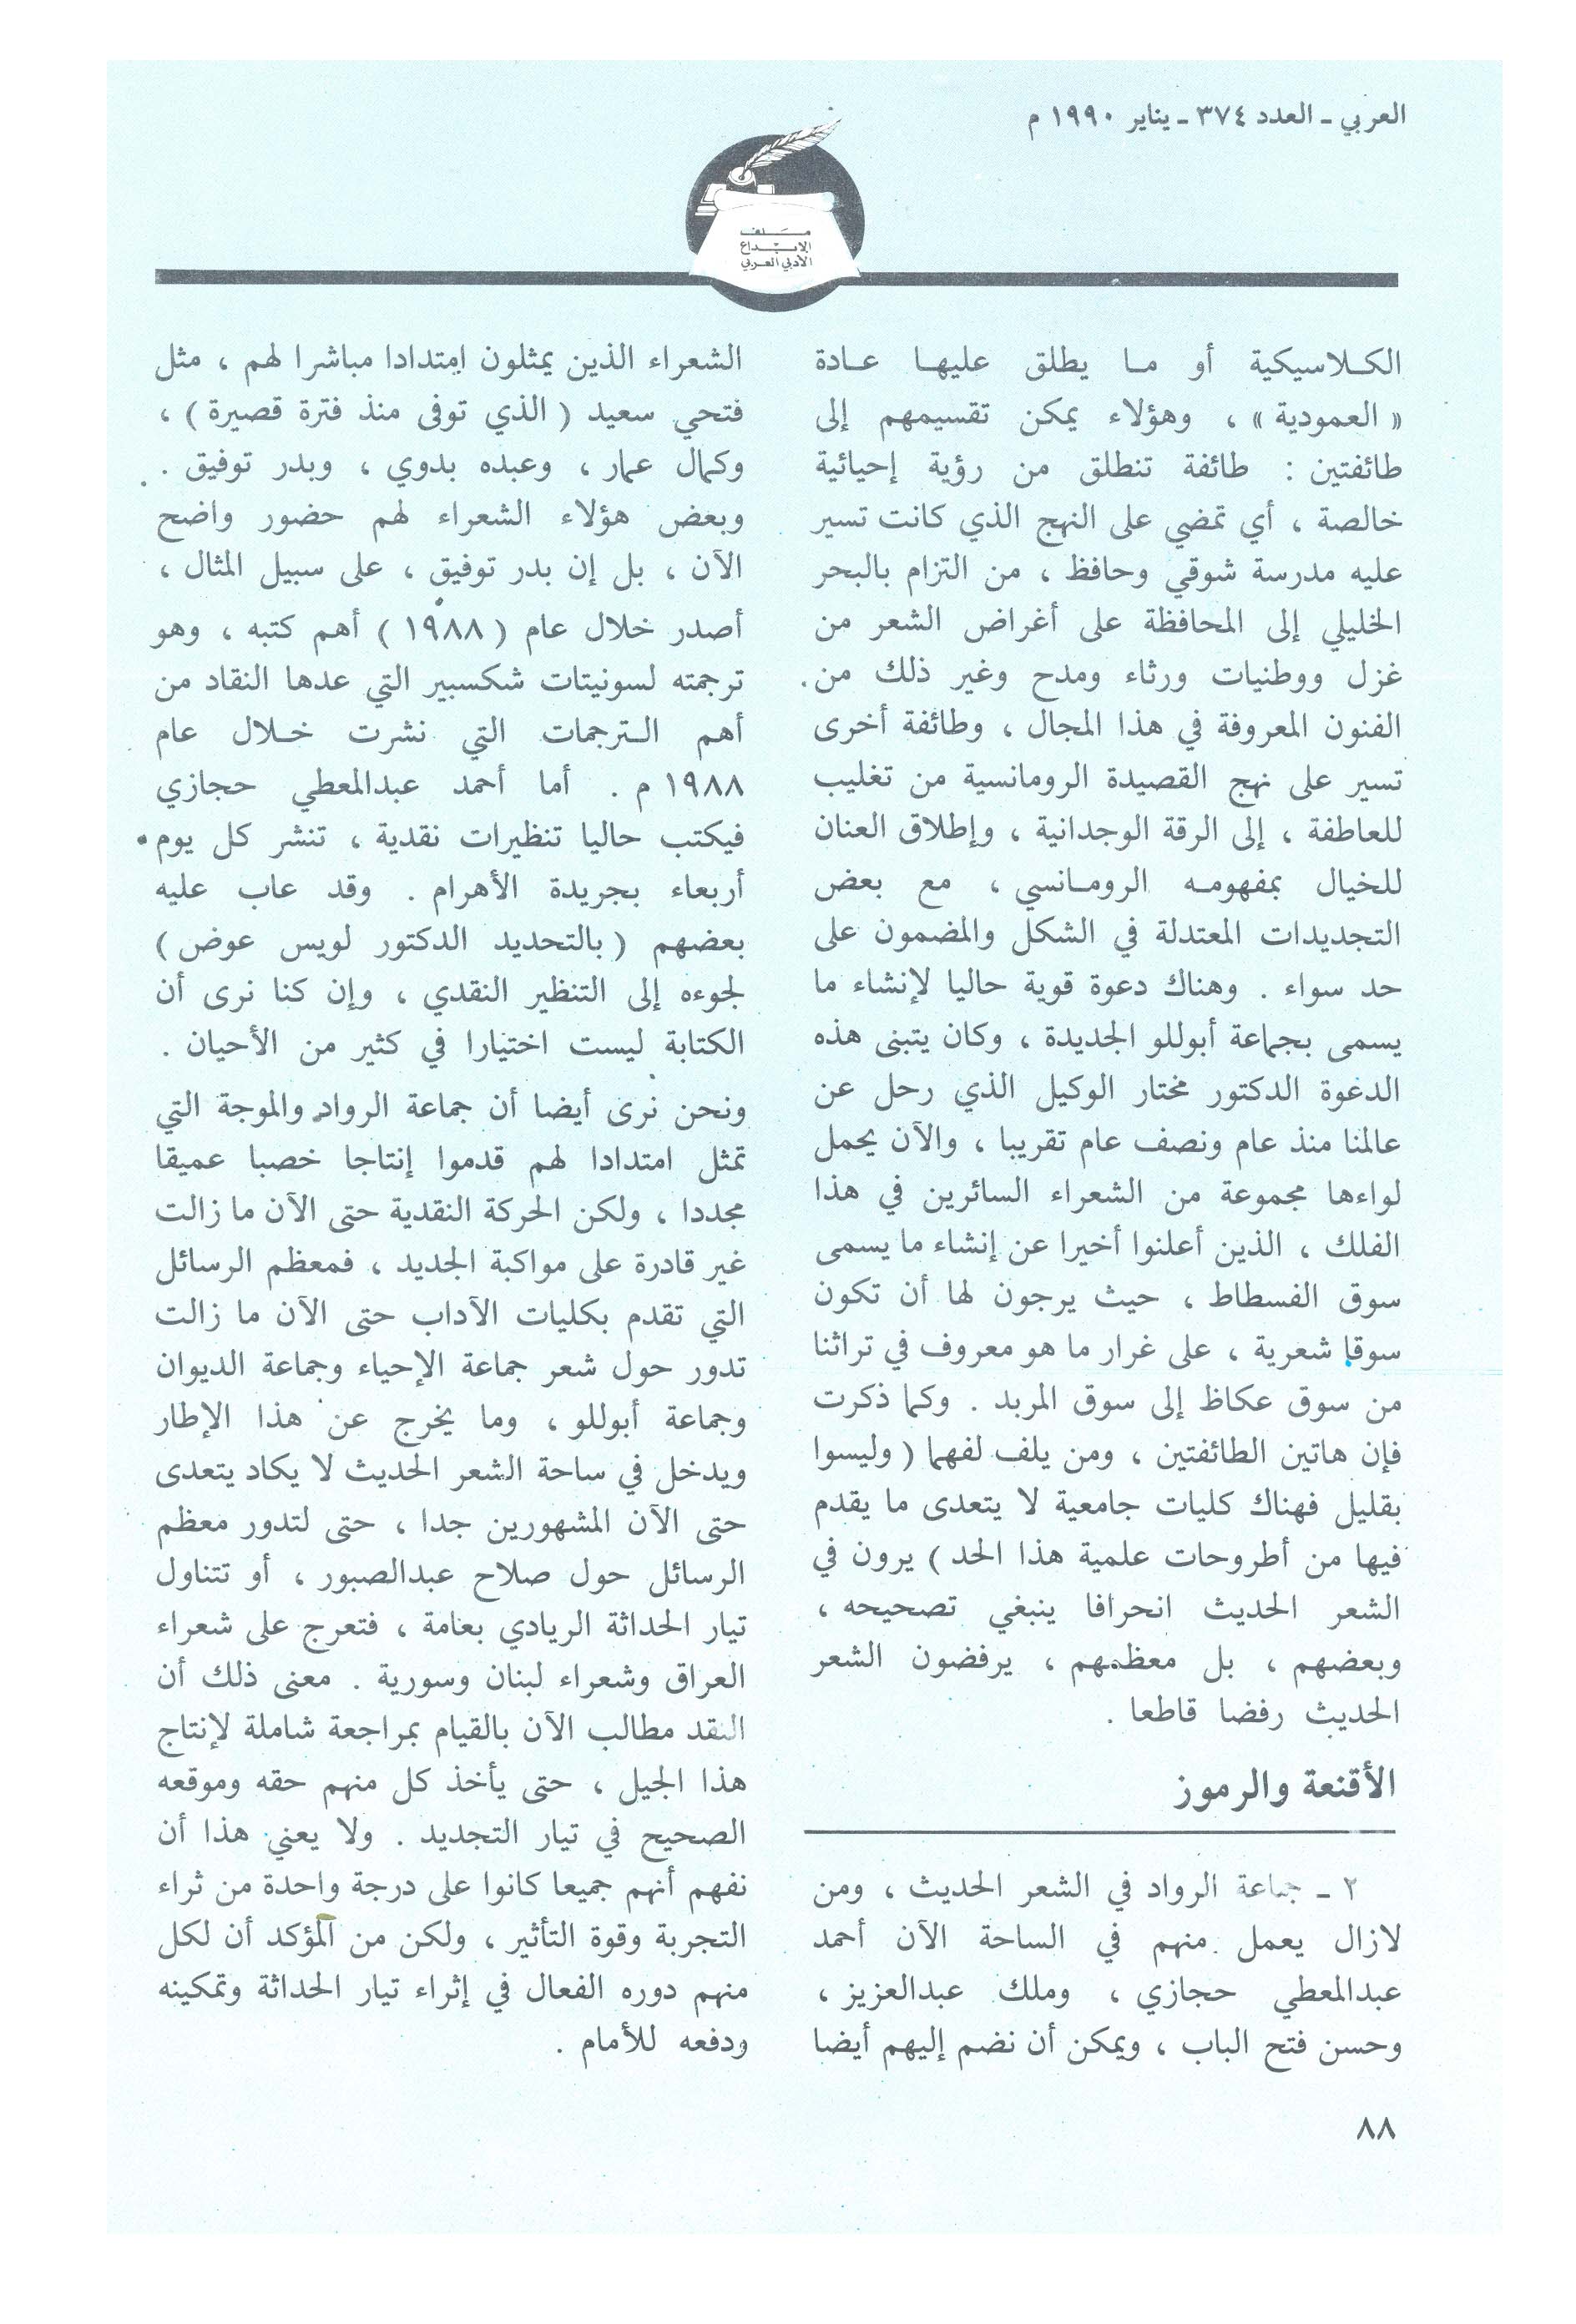 العربي ـ العدد ٣٧٤ ـ يناير ١٩٩٠ م
ملف
الإبداع
الأدبي العربي
الكلاسيكية أو ما يطلق عليها عادة
« العمودية » ، وهؤلاء يمكن تقسيمهم إلى
طائفتين : طائفة تنطلق من رؤية إحيائية
خالصة ، أي تمضي على النهج الذي كانت تسير
عليه مدرسة شوقي وحافظ ، من التزام بالبحر
الخليلي إلى المحافظة على أغراض الشعر من
غزل ووطنيات ورثاء ومدح وغير ذلك من
الفنون المعروفة في هذا المجال ، وطائفة أخرى
تسير على نهج القصيدة الرومانسية من تغليب
للعاطفة ، إلى الرقة الوجدانية ، وإطلاق العنان
للخيال بمفهومه الرومانسي ، مع بعض
التجديدات المعتدلة في الشكل والمضمون على
حد سواء . وهناك دعوة قوية حاليا لإنشاء ما
يسمى بجماعة أبوللو الجديدة ، وكان يتبنى هذه
الدعوة الدكتور مختار الوكيل الذي رحل عن
عالمنا منذ عام ونصف عام تقريبا ، والآن يحمل
لواءها مجموعة من الشعراء السائرين في هذا
الفلك ، الذين أعلنوا أخيرا عن إنشاء ما يسمى
سوق الفسطاط ، حيث يرجون لها أن تكون
سوقا شعرية ، على غرار ما هو معروف في تراثنا
من سوق عكاظ إلى سوق المربد . وكما ذكرت
فإن هاتين الطائفتين ، ومن يلف لفهما ( وليسوا
بقليل فهناك كليات جامعية لا يتعدى ما يقدم
فيها من أطروحات علمية هذا الحد ) يرون في
الشعر الحديث انحرافا ينبغي تصحيحه ،
وبعضهم ، بل معظمهم ، يرفضون الشعر
الحديث رفضا قاطعا .
الأقنعة والرموز
٢ ـ جماعة الرواد في الشعر الحديث ، ومن
لازال يعمل منهم في الساحة الآن أحمد
عبدالمعطي حجازي ، وملك عبدالعزيز ،
وحسن فتح الباب ، ويمكن أن نضم إليهم أيضا
الشعراء الذين يمثلون امتدادا مباشرا لهم ، مثل
فتحي سعيد ( الذي توفى منذ فترة قصيرة ) ،
وكمال عمار ، وعبده بدوي ، وبدر توفيق .
وبعض هؤلاء الشعراء لهم حضور واضح
الآن ، بل إن بدر توفيق ، على سبيل المثال ،
أصدر خلال عام ( ١٩٨٨ ) أهم كتبه ، وهو
ترجمته لسونيتات شكسبير التي عدها النقاد من
أهم الترجمات التي نشرت خلال عام
١٩٨٨ م . أما أحمد عبدالمعطي حجازي
فيكتب حاليا تنظيرات نقدية ، تنشر كل يوم
أربعاء بجريدة الأهرام . وقد عاب عليه
بعضهم ( بالتحديد الدكتور لويس عوض )
لجوءه إلى التنظير النقدي ، وإن كنا نرى أن
الكتابة ليست اختيارا في كثير من الأحيان .
ونحن نرى أيضا أن جماعة الرواد والموجة التي
تمثل امتدادا لهم قدموا إنتاجا خصبا عميقا
مجددا ، ولكن الحركة النقدية حتى الآن ما زالت
غير قادرة على مواكبة الجديد ، فمعظم الرسائل
التي تقدم بكليات الآداب حتى الآن ما زالت
تدور حول شعر جماعة الإحياء وجماعة الديوان
وجماعة أبوللو ، وما يخرج عن هذا الإطار
ويدخل في ساحة الشعر الحديث لا يكاد يتعدى
حتى الآن المشهورين جدا ، حتى لتدور معظم
الرسائل حول صلاح عبدالصبور ، أو تتناول
تيار الحداثة الريادي بعامة ، فتعرج على شعراء
العراق وشعراء لبنان وسورية . معنى ذلك أن
النقد مطالب الآن بالقيام بمراجعة شاملة لإنتاج
هذا الجيل ، حتى يأخذ كل منهم حقه وموقعه
الصحيح في تيار التجديد . ولا يعني هذا أن
نفهم أنهم جميعا كانوا على درجة واحدة من ثراء
التجربة وقوة التأثير ، ولكن من المؤكد أن لكل
منهم دوره الفعال في إثراء تيار الحداثة وتمكينه
ودفعه للأمام .
٨٨